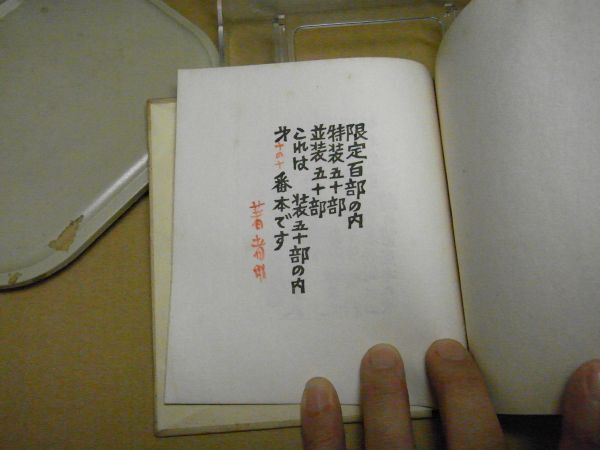 限定百部の内
特装五十部
並装五十部
これは　装五十部の内
才十の十番本です